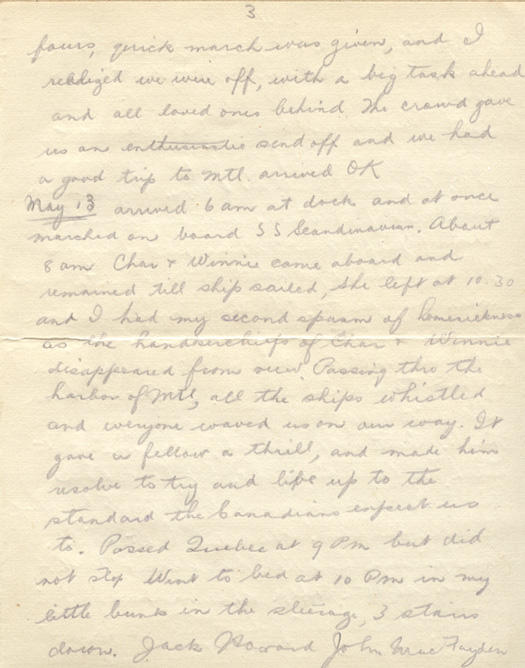 3
fours, quick march was given, and I
realized we were off, with a big task ahead
and all loved ones behind. The crowd gave
us an enthusiastic send off and we had
a good trip to Mtl. arrived OK
May 13 arrived 6 am at dock and at once
marched on board S S Scandinavian. About
8 am Char & Winnie came aboard and
remained till ship sailed, She left at 10.30
and I had my second spasm of homesickness
as the handkerchiefs of Char & Winnie
disappeared from view. Passing thro the
harbor of Mtl, all the ships whistled
and everyone waved us on our way. It
gave a fellow a thrill, and made him
resolve to try and live up to the
standard the Canadians expect us
to. Passed Quebec at 9 PM but did
not stop Went to bed at 10 PM in my
little bunk in the steerage, 3 stairs
down. Jack Howard John MacFayden